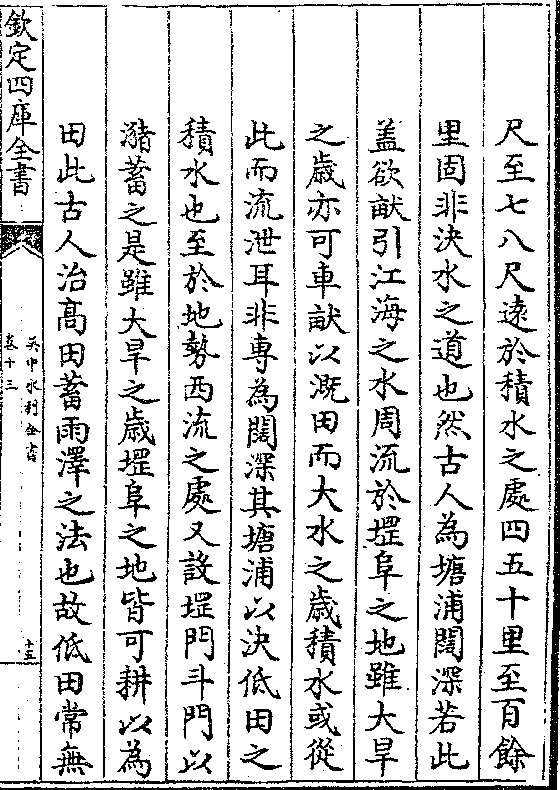 尺至七八尺遠於積水之處四五十里至百餘
里固非決水之道也然古人為塘浦闊深若此
盖欲畎引江海之水周流於堽阜之地雖大旱
之歲亦可車畎以溉田而大水之歲積水或從
此而流泄耳非專為闊深其塘浦以決低田之
積水也至於地勢西流之處又設堽門斗門以
瀦蓄之是雖大旱之歲堽阜之地皆可耕以為
田此古人治髙田蓄雨澤之法也故低田常無
欽定四庫全書
吳中水利全書
卷十三
十五